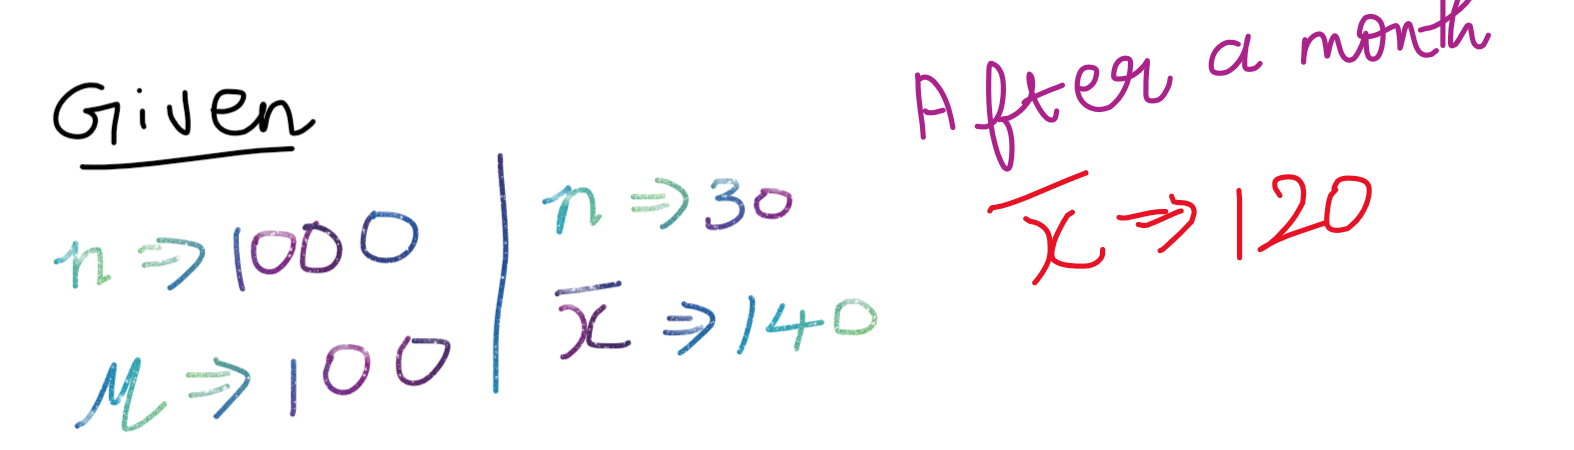 Given
n => 1000
μ => 100
n => 30
x̅ => 140
After a month
x̅ => 120